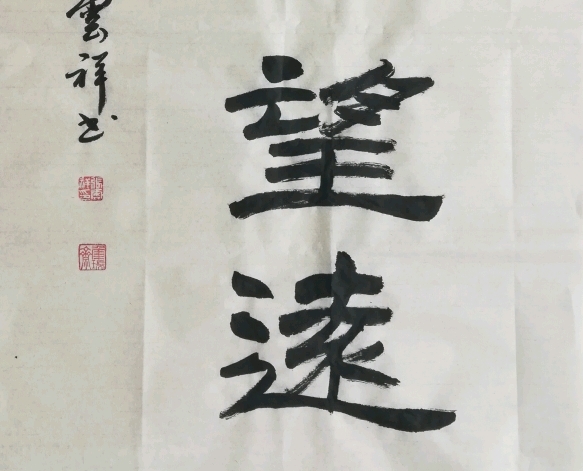 望遠
雲祥书